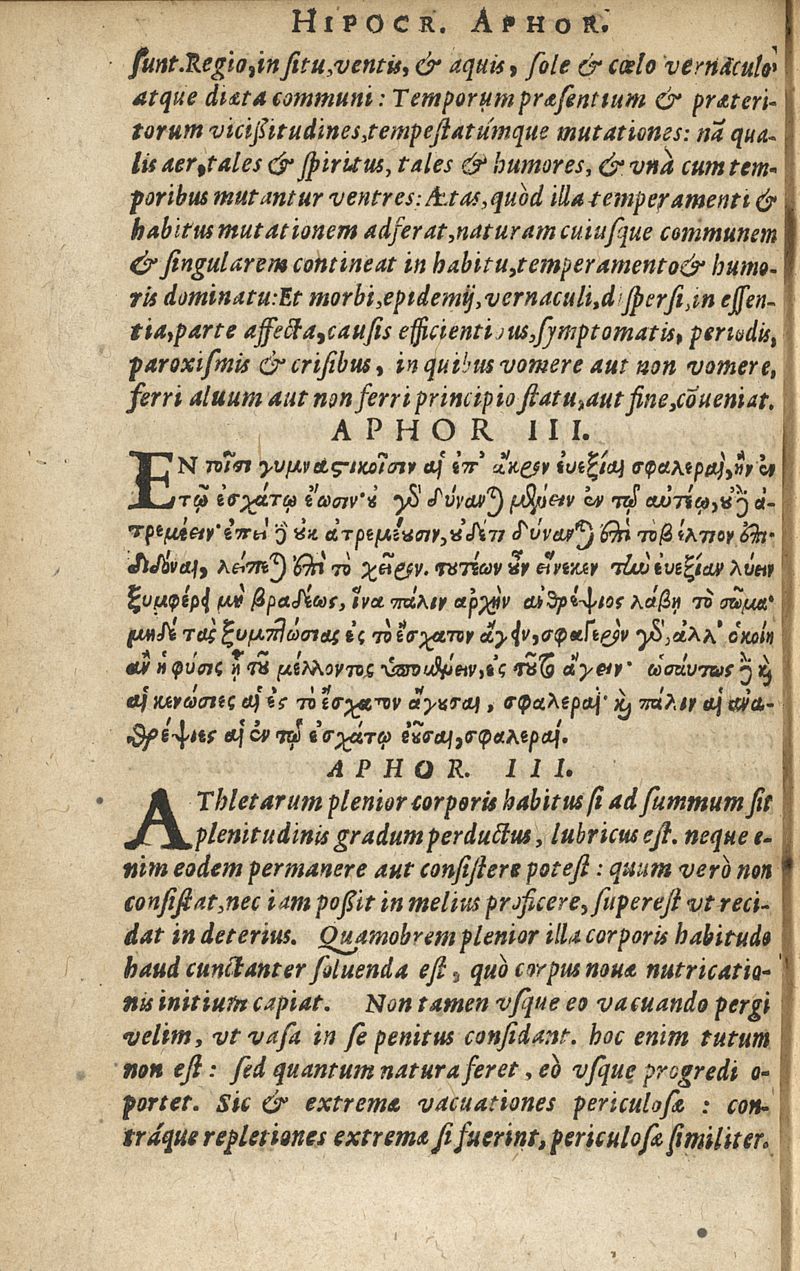 HIPOCR. APHOR.
ſunt. Regio, in ſitu, ventis, & aquis, ſole & cœlo vernaculo
atque diæta communi: Temporum præſentium & præteri-
torum viciſſitudines, tempeſtatúmque mutationes: nã qua-
lis aer, tales & ſpiritus, tales & humores, & vnà cum tem-
poribus mutantur ventres: Ætas, quòd illa temperamenti &
habitus mutationem adferat, naturam cuiuſque communem
& ſingularem contineat in habitu, temperamento & humo-
ris dominatu: Et morbi, epidemij, vernaculi, diſperſi, in eſſen-
tia, parte affecta, cauſis efficientibus, ſymptomatis, periodis,
paroxiſmis & criſibus, in quibus vomere aut non vomere,
ferri aluum aut non ferri principio ſtatu, aut fine, cõueniat.
APHOR III.
ΕΝ τοῖσι γυμναστικοῖσιν αἱ ἐπ' ἄκρον ἐυεξίαι σφαλεραὶ, ἢν ἐν
τῷ ἐσχάτῳ ἔωσιν· οὐ γὰρ δύνανται μένειν ἐν τῷ αὐτέῳ, οὐδὲ ἀ-
τρεμέειν· ἐπεὶ δὲ οὐκ ἀτρεμέουσιν, οὐδέτι δύνανται ἐπὶ τὸ βέλτιον ἐπι-
διδόναι, λείπεται ἐπὶ τὸ χεῖρον. τουτέων οὖν εἵνεκεν τὴν ἐυεξίαν λύειν
ξυμφέρει μὴ βραδέως, ἵνα πάλιν ἀρχὴν ἀναθρέψιος λάβῃ τὸ σῶμα·
μηδὲ τὰς ξυμπτώσιας ἐς τὸ ἔσχατον ἄγειν, σφαλερὸν γὰρ, ἀλλ' ὁκοίη
ἂν ἡ φύσις ᾖ τοῦ μέλλοντος ὑπομένειν, ἐς τοῦτο ἄγειν· ὡσαύτως δὲ καὶ
αἱ κενώσιες αἱ ἐς τὸ ἔσχατον ἄγουσαι, σφαλεραί· καὶ πάλιν αἱ ἀνα-
θρέψιες αἱ ἐν τῷ ἐσχάτῳ ἐοῦσαι, σφαλεραί.
APHOR. III.
AThletarum plenior corporis habitus ſi ad ſummum ſit
plenitudinis gradum perductus, lubricus eſt. neque e-
nim eodem permanere aut conſiſtere poteſt: quum verò non
conſiſtat, nec iam poſſit in melius proficere, ſupereſt vt reci-
dat in deterius. Quamobrem plenior illa corporis habitudo
haud cunctanter ſoluenda eſt, quò corpus nouæ nutricatio-
nis initium capiat. Non tamen vſque eo vacuando pergi
velim, vt vaſa in ſe penitus conſidant. hoc enim tutum
non eſt: ſed quantum natura feret, eò vſque progredi o-
portet. Sic & extremæ vacuationes periculoſæ: con-
tráque repletiones extremæ ſi fuerint, periculoſæ ſimiliter.